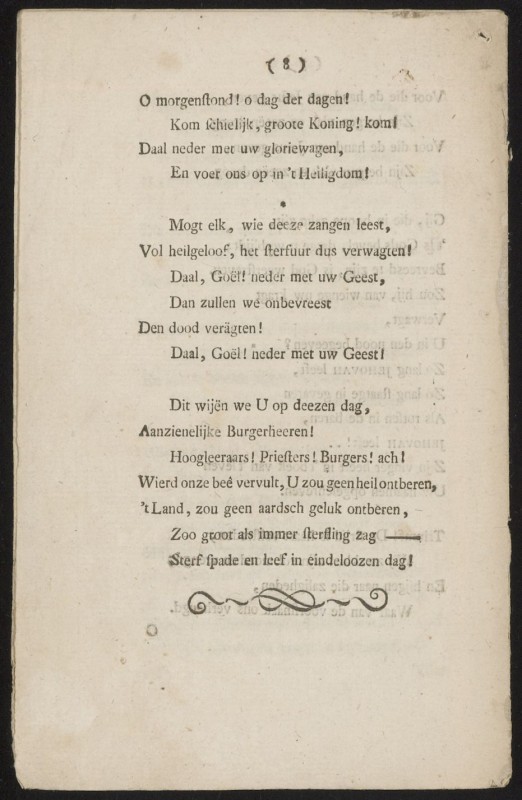 ( 8 )
O morgenſtond! o dag der dagen!
Kom ſchielijk, groote Koning! kom!
Daal neder met uw gloriewagen,
En voer ons op in 't Heiligdom!
Mogt elk, wie deeze zangen leest,
Vol heilgeloof, het ſterfuur dus verwagten!
Daal, Goël! neder met uw Geest,
Dan zullen we onbevreest
Den dood verägten!
Daal, Goël! neder met uw Geest!
Dit wijën we U op deezen dag,
Aanzienelijke Burgerheeren!
Hoogleeraars! Prieſters! Burgers! ach!
Wierd onze beê vervult, U zou geen heil ontberen,
't Land, zou geen aardsch geluk ontberen,
Zoo groot als immer ſterfling zag ——
Sterf ſpade en leef in eindeloozen dag!